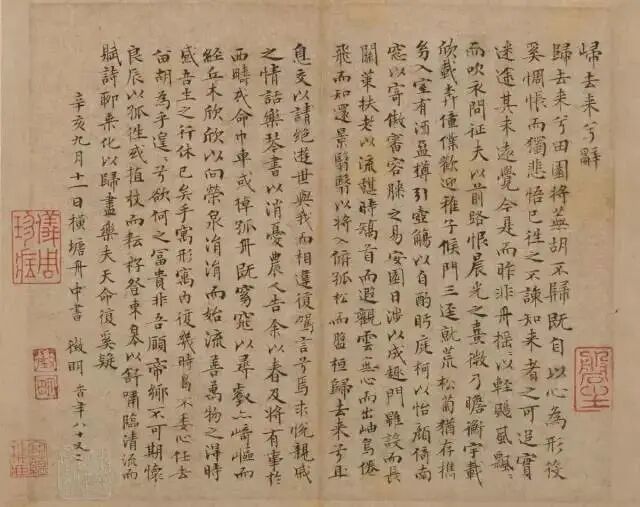 歸去来兮辭
歸去来兮田園将蕪胡不歸既自以心為形役
奚惆悵而獨悲悟已往之不諫知来者之可追實
迷途其未遠覺今是而昨非舟摇〻以輕颺風飄〻
而吹衣問征夫以前路恨晨光之熹微乃瞻衡宇載
欣載奔僮僕歡迎稚子候門三逕就荒松菊猶存携
幼入室有酒盈樽引壺觴以自酌眄庭柯以怡顔倚南
窓以寄傲審容膝之易安園日涉以成趣門雖設而長
關策扶老以流憩時矯首而遐觀雲無心而出岫鳥倦
飛而知還景翳翳以将入撫孤松而盤桓歸去来兮且
息交以請絕遊世與我而相違復駕言兮焉求悅親戚
之情話樂琴書以消憂農人告余以春及将有事於
西疇或命巾車或棹孤舟既窈窕以尋壑亦崎嶇而
經丘木欣欣以向榮泉涓涓而始流善萬物之得時
感吾生之行休已矣乎寓形寓内復幾時曷不委心任去
留胡為乎遑〻兮欲何之富貴非吾願帝鄉不可期懷
良辰以孤往或植杖而耘耔登東皋以舒嘯臨清流而
賦詩聊乘化以歸盡樂夫天命復奚疑
辛亥九月十一日橫塘舟中書 徵明 時年八十又二
儀周珍藏